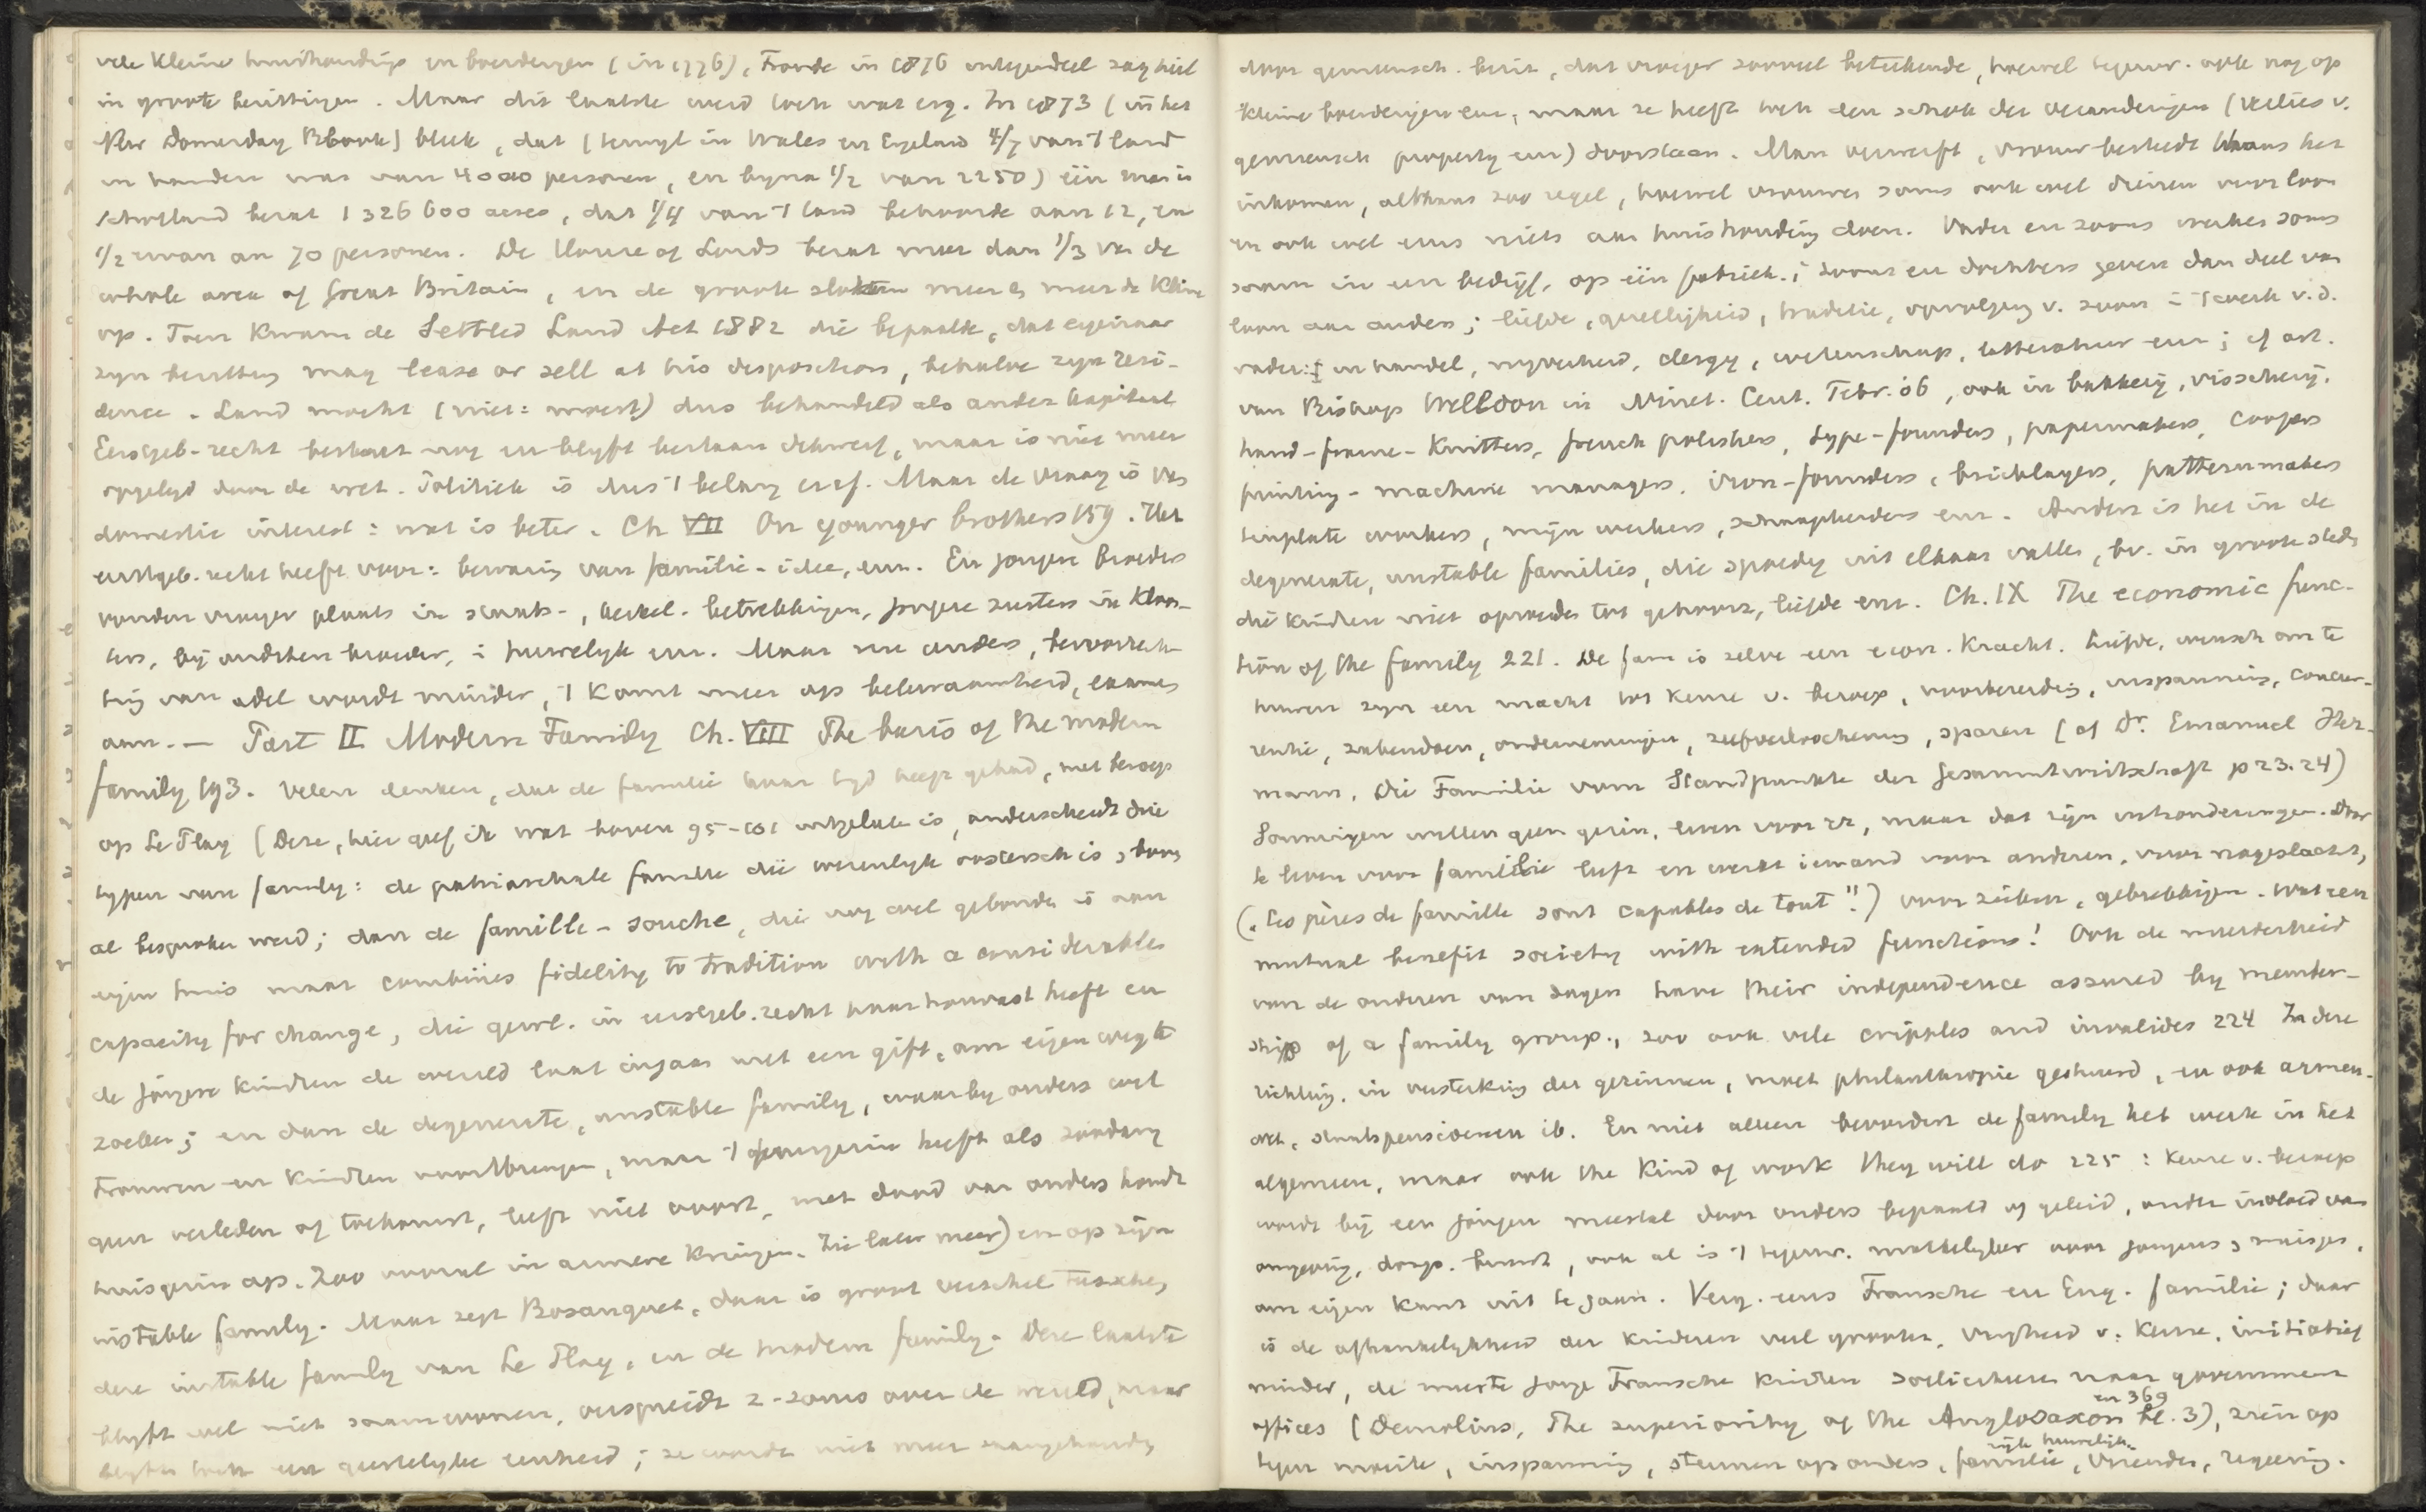 vele kleine huishoudings en boerderyen (in 1776), Froude in 1876 integendeel zag heil
in groote bezittingen. Maar dit laatste werd toch wat erg. In 1873 (in het
New Domesday Book) bleek, dat (terwyl in Wales en Engeland 4/7 van 't land
in handen was van 4000 personen, en byna 1/2 van 2250) één man in
Schotland bezat 1326000 acres, dat 1/4 van 't land behoorde aan 12, en
1/2 ervan an 70 personen. De House of Lords bezat meer dan 1/3 van de
whole area of Great Britain, en de groote slokten meer en meer de kleine
op. Toen kwam de Settled Land Act 1882 die bepaalde, dat eigenaar
zyn bezitting may lease or sell at his disposition, behalve zyn resi-
dence. Land mocht (niet: moest) dus behandeld als ander kapitaal
Eerstgeb-recht bestaat nog en blyft bestaan, maar is niet meer
opgelegd door de wet. Politiek is dus 't belang eraf. Maar de vraag is van
domestic interest: wat is beter. Ch VII On younger brothers 159. Het
eerstgeb. recht heeft voor: bewaring van familie-idee, enz. En jonger broeders
vonden vroeger plaats in staats-, kerkel. betrekkingen, jongere zusters in kloos-
ters, bij oudsten broeder, in huwelyk enz. Maar nu anders, bevoorrech-
ting van adel wordt minder, 't komt meer op bekwaamheid, examens
aan. — Part II Modern Family Ch. VIII The basis of the modern
family 193. Velen denken, dat de familie haar tyd heeft gehad, met beroep
op Le Play (Deze, hier geef ik wat boven 95-101 uitgelaten is, onderscheidt drie
typen van family: de patriarchale familie die wezenlyk oostersch is,
al besproken werd; dan de famille-souche, die nog wel gebonden is aan
eigen huis maar combines fidelity to tradition with a considerable
capacity for change, die gewl. in eerstgeb. recht haar houvast heeft en
de jongere kinderen de wereld laat ingaan met een gift, om eigen weg te
zoeken; en dan de degenerate, unstable family, waarby ouders wel
trouwen en kinderen voortbrengen, maar 't gezin heeft als zoodanig
geen verleden of toekomst, leeft niet voort, met dood van ouders houdt
huisgezin op. Zoo vooral in armere kringen. Zie later meer) en op zyn
instable family. Maar zegt Bosanquet, daar is groot verschil tusschen
deze instable family van Le Play, en de modern family. Deze laatste
blyft wel niet samenwonen, verspreidt z-soms over de wereld, maar
blyft toch een geestelyke eenheid; ze wordt niet meer saamgehouden
door gemeensch. bezit, dat vroeger zooveel beteekende, hoewel tegenw. ook nog op
kleine boerderyen enz, maar ze heeft toch den schok der veranderingen (verlies v.
gemeensch property enz) doorstaan. Man verwerft, vrouw besteedt thans het
inkomen, althans zoo regel, hoewel vrouwen soms ook wel dienen voor loon
en ook wel eens niets aan huishouding doen. Vader en zoons werken soms
saam in een bedrijf, op één fabriek; zoons en dochters geven dan deel van
loon aan ouders; liefde, gezelligheid, traditie, opvolging v. zoon in 't werk v.d.
vader: in handel, nyverheid, clergy, wetenschap, litteratuur enz; cf art.
van Bishop Welldon in Ninet. Cent. Febr. 06, ook in bakkerij, visscherij,
hand-frame-knitters, french polishers, type-founders, papermakers, coopers
printing-machine managers, iron-founders, bricklayers, patternmakers
tinplate workers, mijn werkers, schaapherders enz. Anders is het in de
degenerate, unstable families, die spoedig uit elkaar vallen, bv. in groote steden
die kinderen niet opvoeden tot gehoorz, liefde enz. Ch. IX The economic func-
tion of the family 221. De fam is zelve een econ. kracht. Liefde, wensch om te
huwen zyn een macht tot keuze v. beroep, voorbereiding, inspanning, concur-
rentie, zakendoen, ondernemingen, zelfverloochening, sparen (cf Dr. Emanuel Her-
mann, Die Familie vom Standpunkte der Gesammtwirtschaft p 23.24)
Sommigen willen geen gezin, leven voor zich, maar dat zijn uitzonderingen. Door
te leven voor familie leeft en werkt iemand voor anderen, voor nageslacht,
("Les pères de famille sont capables de tout"!) voor zieken, gebrekkigen. Wat een
mutual benefit society with extended functions! Ook de meerderheid
van de ouden van dagen have their independence assured by member-
ship of a family group., zoo ook vele cripples and invalides 224 In deze
richting, in versterking der gezinnen, moet philanthropie gestuurd, en ook armen-
wet, staatspensioenen ib. En niet alleen bevordert de family het werk in het
algemeen, maar ook the kind of work they will do 225: keuze v. beroep
wordt bij een jongen meestal door ouders bepaald of geleid, onder invloed van
omgeving, dorp. kunst, ook al is 't tegenw. makkelyker voor jongens & meisjes,
om eigen kant uit te gaan. Verg. eens Fransche en Eng. familie; daar
is de afhankelykheid der kinderen veel grooter, vryheid v. keuze, initiatief
minder, de meeste jonge Fransche kinderen solliciteeren naar government
offices (Demolins, The superiority of the Anglosaxon bl. 3), zien op
en 369
tegen moeite, inspanning, steunen op ouders, familie, vrienden, regeering.
rijk huwelijk